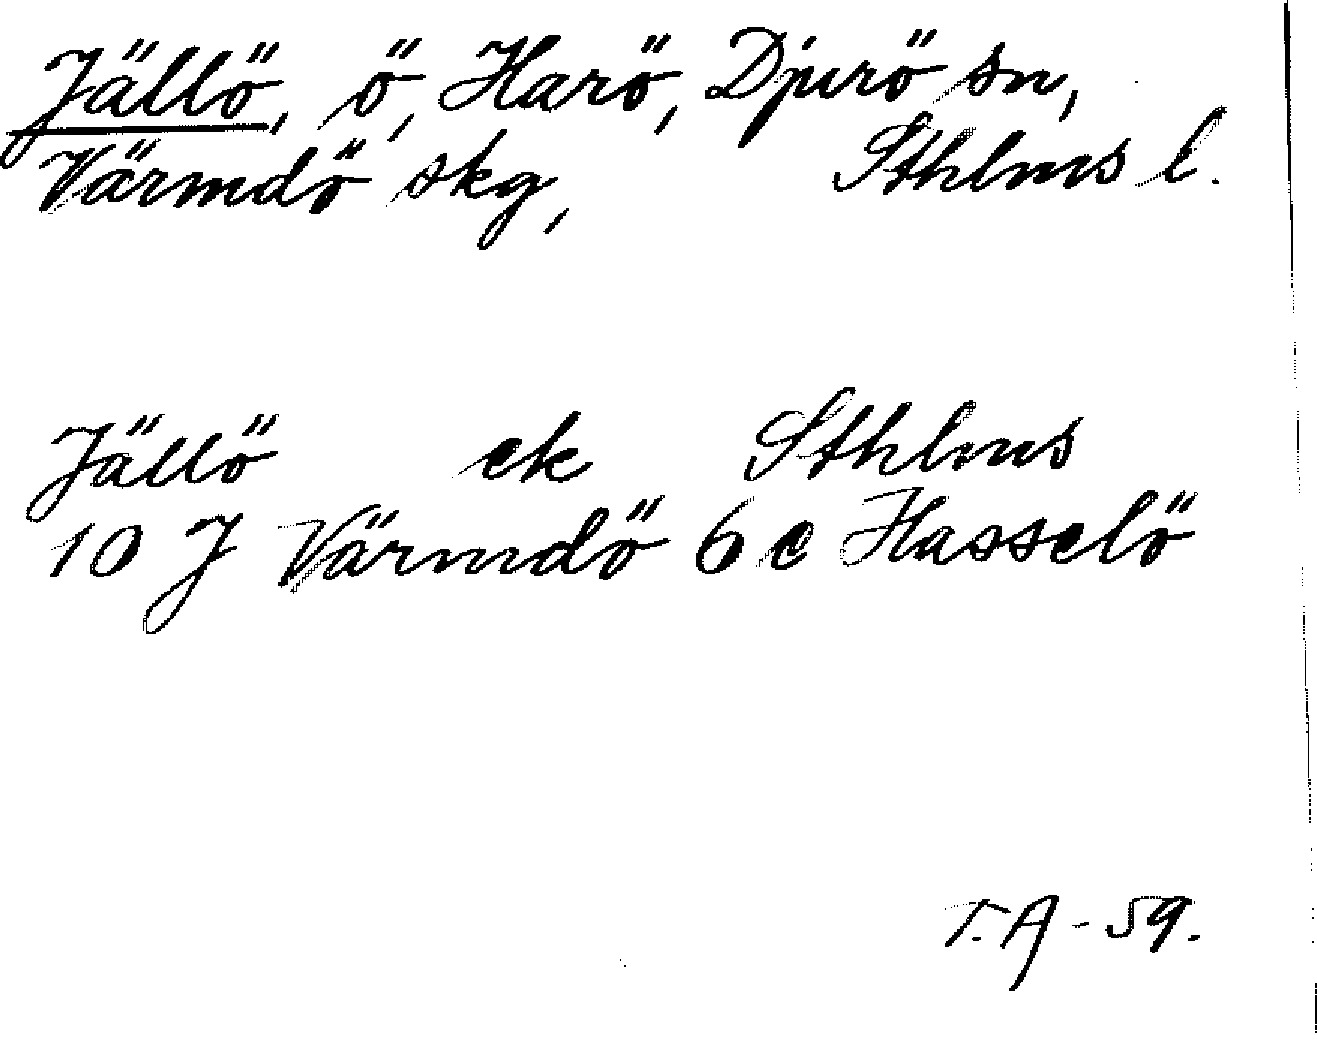 Jällö, ö, Harö, Djurö sn,
Värmdö skg, Sthlms l.
Jällö ek Sthlms
10 J Värmdö 6 c Hasselö
T.A - 59.